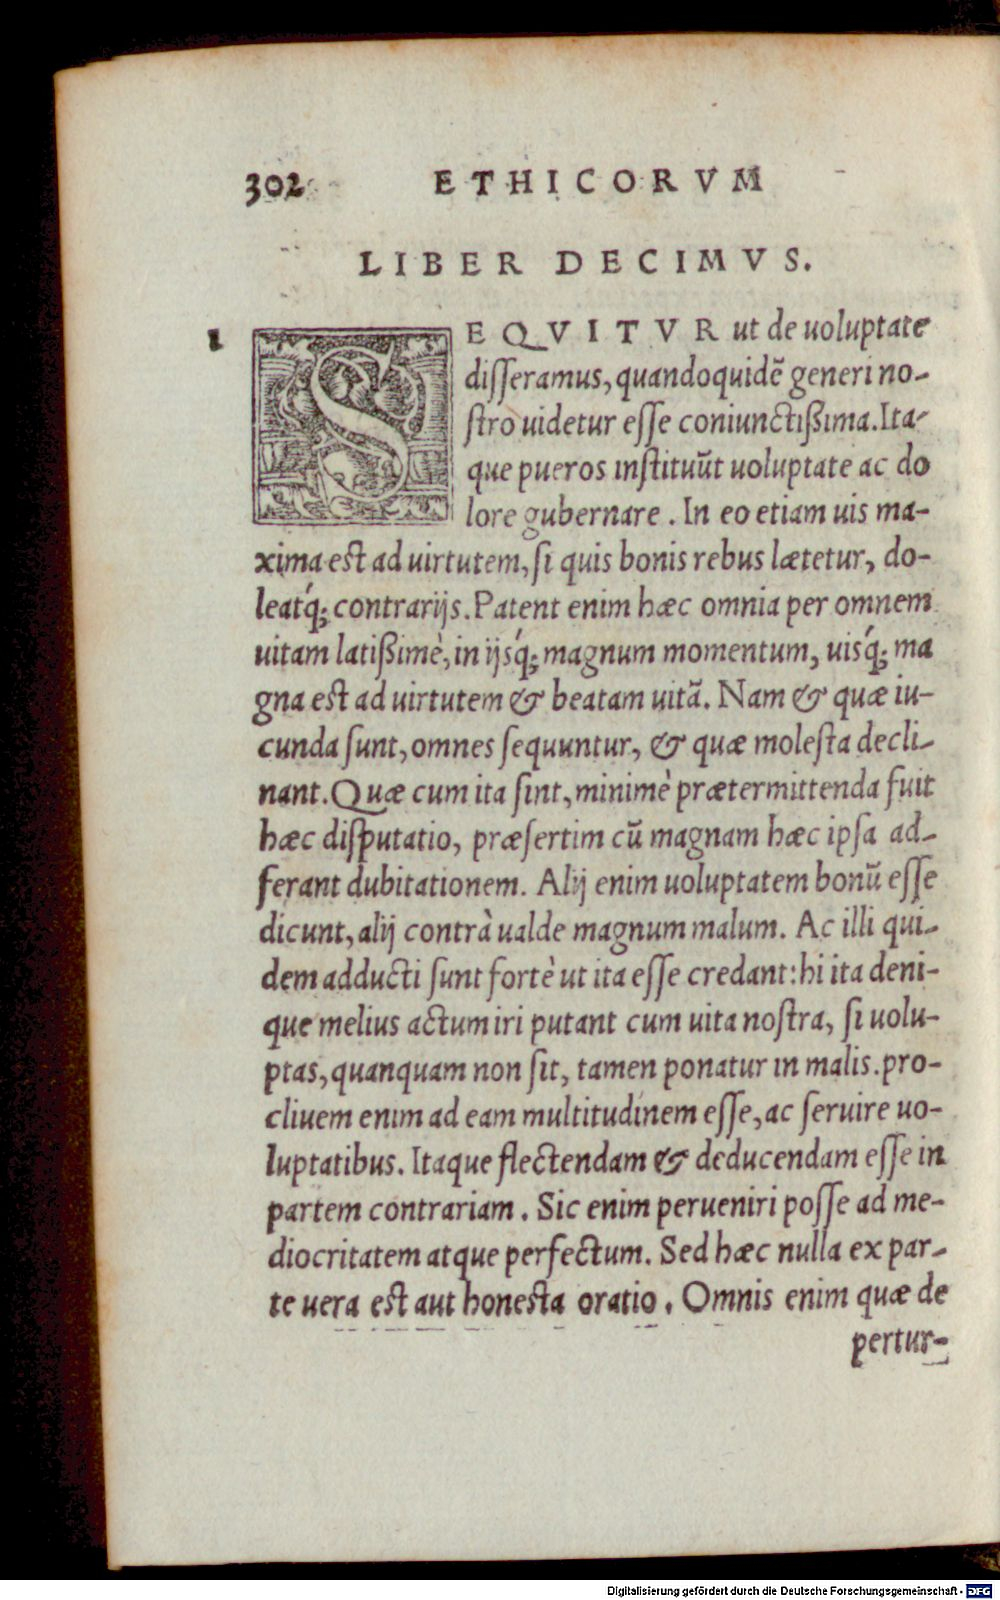 302 ETHICORVM
LIBER DECIMVS.
1
SEQVITVR ut de uoluptate
disseramus, quandoquidẽ generi no-
stro uidetur esse coniunctißima. Ita-
que pueros instituũt uoluptate ac do
lore gubernare. In eo etiam uis ma-
xima est ad uirtutem, si quis bonis rebus lætetur, do-
leatq́; contrarijs. Patent enim hæc omnia per omnem
uitam latißimè, in ijsq́; magnum momentum, uisq́; ma
gna est ad uirtutem & beatam uitã. Nam & quæ iu-
cunda sunt, omnes sequuntur, & quæ molesta decli-
nant. Quæ cum ita sint, minimè prætermittenda fuit
hæc disputatio, præsertim cũ magnam hæc ipsa ad-
ferant dubitationem. Alij enim uoluptatem bonũ esse
dicunt, alij contrà ualde magnum malum. Ac illi qui-
dem adducti sunt fortè ut ita esse credant: hi ita deni-
que melius actum iri putant cum uita nostra, si uolu-
ptas, quanquam non sit, tamen ponatur in malis. pro-
cliuem enim ad eam multitudinem esse, ac seruire uo-
luptatibus. Itaque flectendam & deducendam esse in
partem contrariam. Sic enim perueniri posse ad me-
diocritatem atque perfectum. Sed hæc nulla ex par-
te uera est aut honesta oratio. Omnis enim quæ de
pertur-
Digitalisierung gefördert durch die Deutsche Forschungsgemeinschaft - DFG